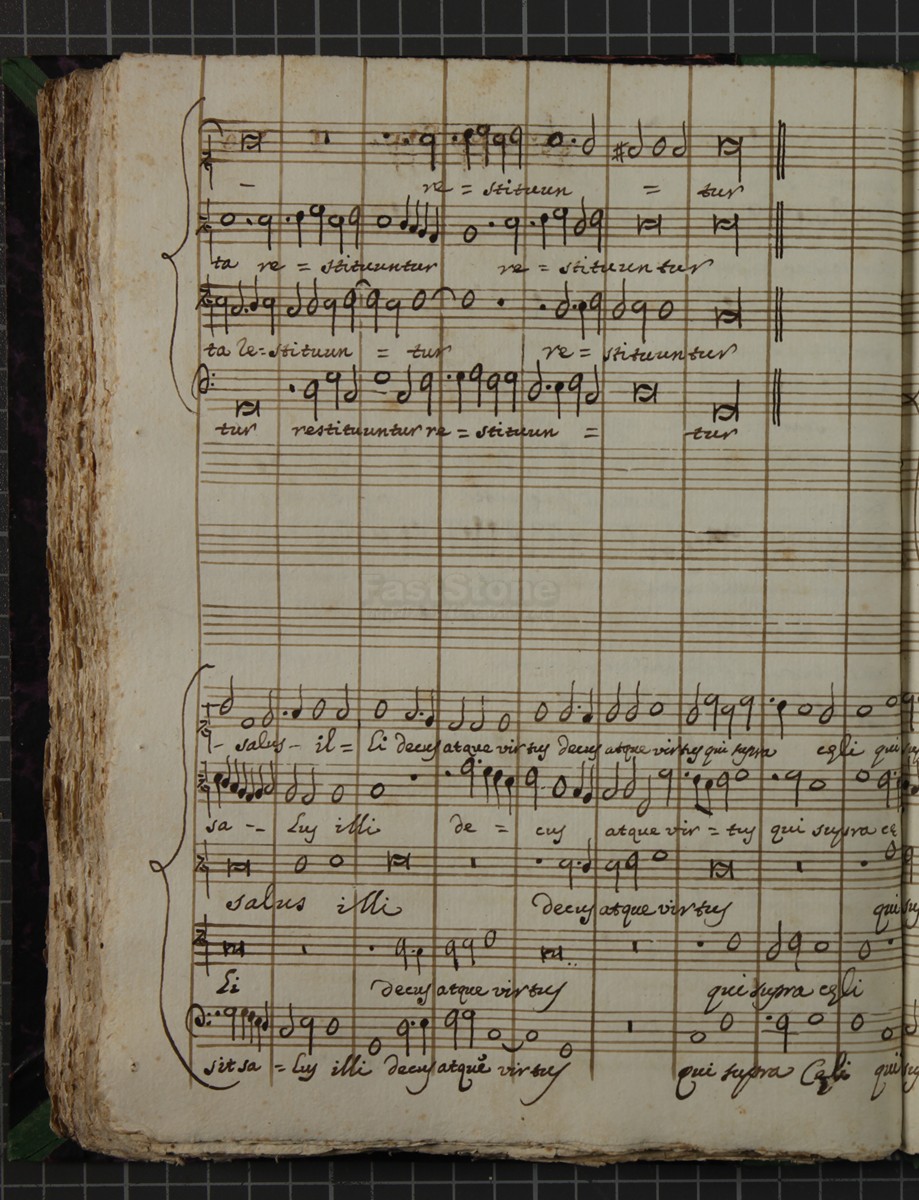 - re = stituun = tur
ta re = stituuntur re = stituuntur
ta re=stituun = tur re = stituuntur
tur restituuntur re = stituun = tur
FastStone
- salus - il = li decus atque virtus decus atque virtus qui supra cęli qui su
sa -- lus illi de = cus atque vir = tus qui supra cę
salus illi decus atque virtus qui su
li decus atque virtus qui supra cęli
sit sa = lus illi decus atque virtus qui supra Cęli qui su